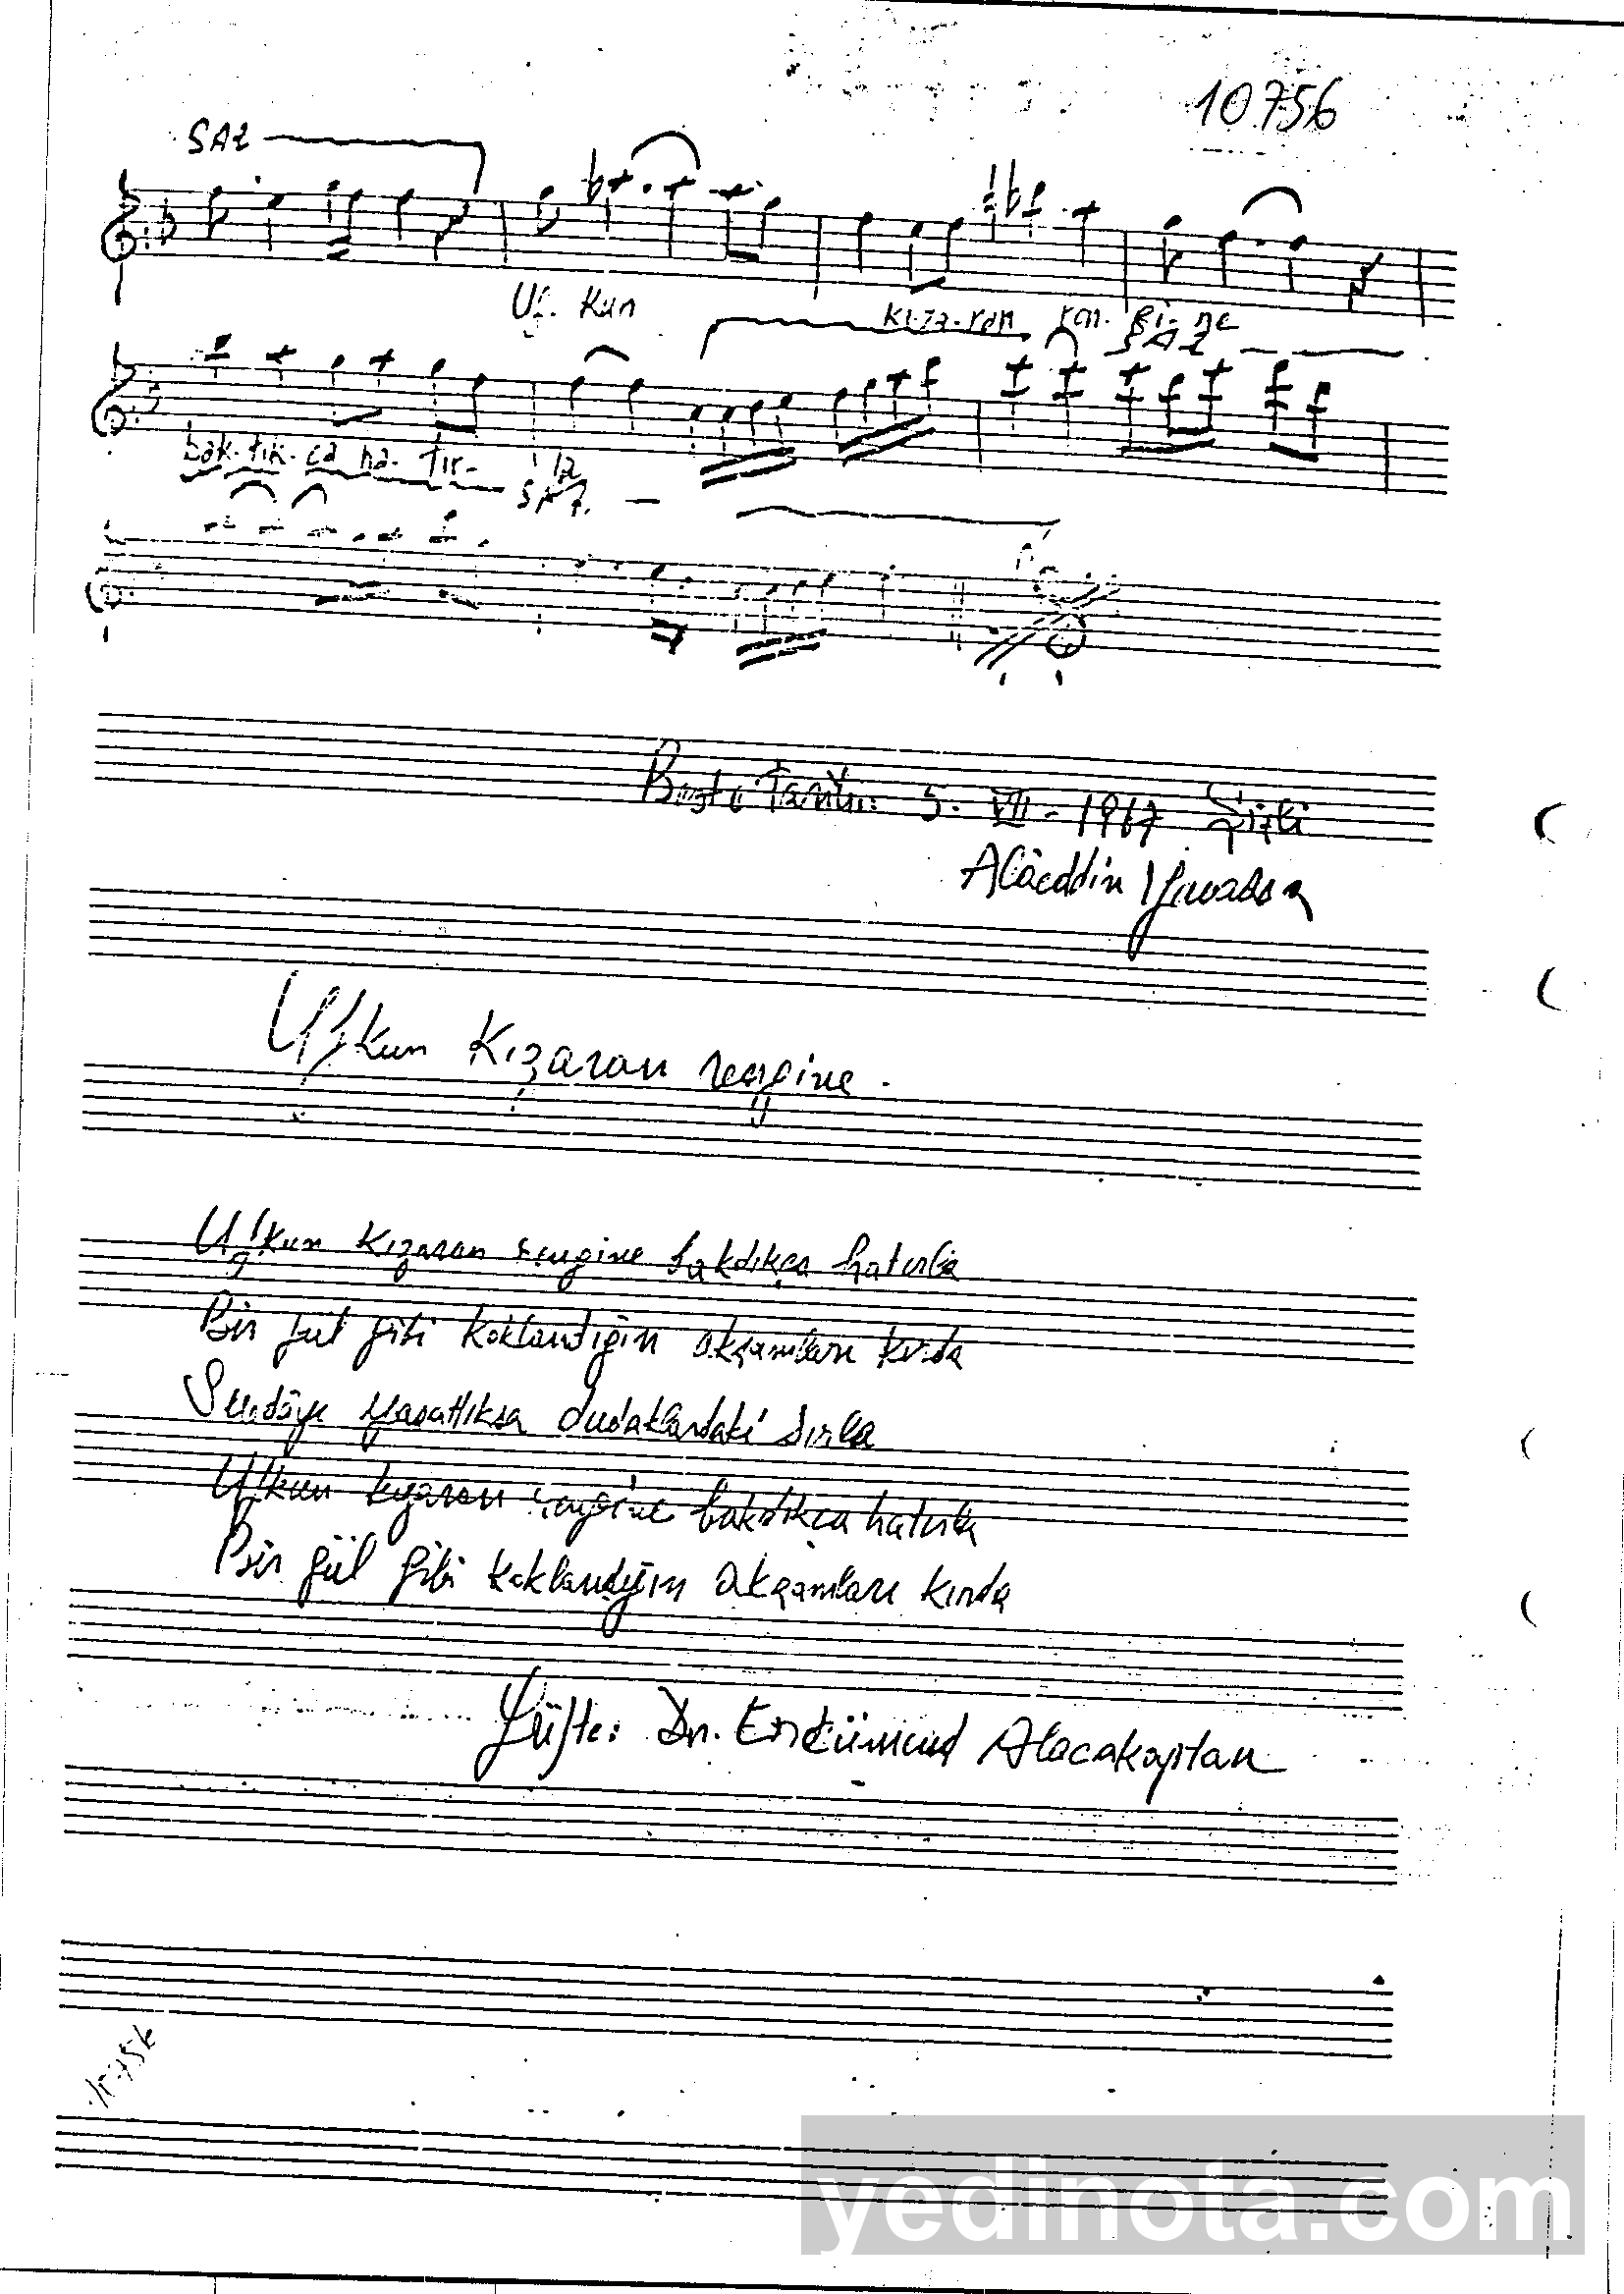 10756
SAZ
Uf- kun kı-za-ran ren-gi-ne
SAZ
bak-tık-ca ha-tır- la
SAZ
Beste Tarihi: 5-VII-1967 Şişli
Alâeddin Yavaşca
Ufkun Kızaran rengine
Ufkun kızaran rengine baktıkça hatırla
Bir gül gibi koklandığın akşamları kırda
Sevdâyı yaşattıksa dudaklardaki sırla
Ufkun kızaran rengine baktıkça hatırla
Bir gül gibi koklandığın akşamları kırda
Güfte: Dr. Ercümend Alacakaptan
10756
yedinota.com